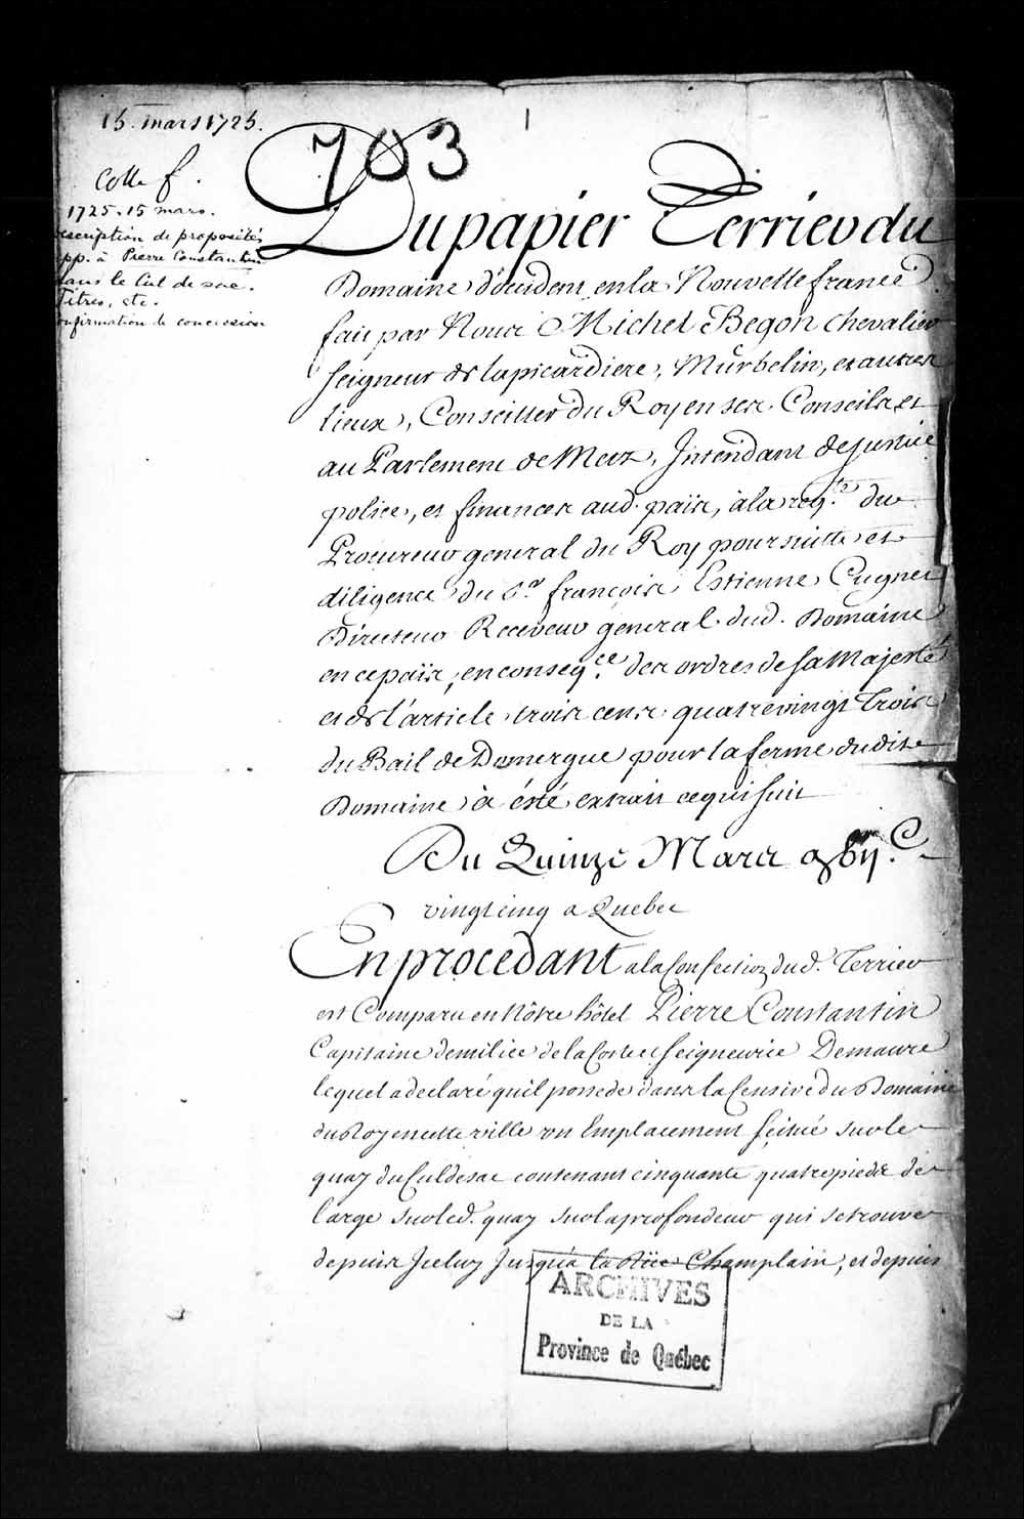 15. mars 1725.
703
1
Cotte f.
1725. 15 mars.
description de propriétés
app. à Pierre Constantin
dans le Cul de sac.
Titres, etc.
confirmation de concession
Du papier Terrier du
Domaine d'occident en la Nouvelle france
fait par Nous Michel Begon chevalier
seigneur de la picardiere, Murbelin, et autres
lieux, Conseiller du Roy en ses Conseils et
au Parlement de Metz, Intendant de justice
police, et finances aud. païs, à la reqte. du
Procureur general du Roy poursuitte et
diligence du Sr. françois Estienne Cugnet
Directeur Receveur general dud. Domaine
en ce païs, en conseqce. des ordres de sa Majesté
et de l'article trois cens quatrevingt Trois
du Bail de Domergue pour la ferme dudit
Domaine à été extrait ce qui suit
Du Quinze Mars
vingt cinq a Quebec
En procedant a la Confection dud. Terrier
est Comparu en Nôtre hôtel Pierre Constantin
Capitaine de milice de la Coste et seigneurie Demaure
lequel a declaré qu'il possede dans la Censive du Domaine
du Roy en cette ville un Emplacement scitué sur le
quay du Culdesac contenant cinquante quatre pieds de
large sur led. quay sur la profondeur qui se trouve
depuis Iceluy Jusqu'a la Rüe Champlain, et depuis
ARCHIVES
DE LA
Province de Québec